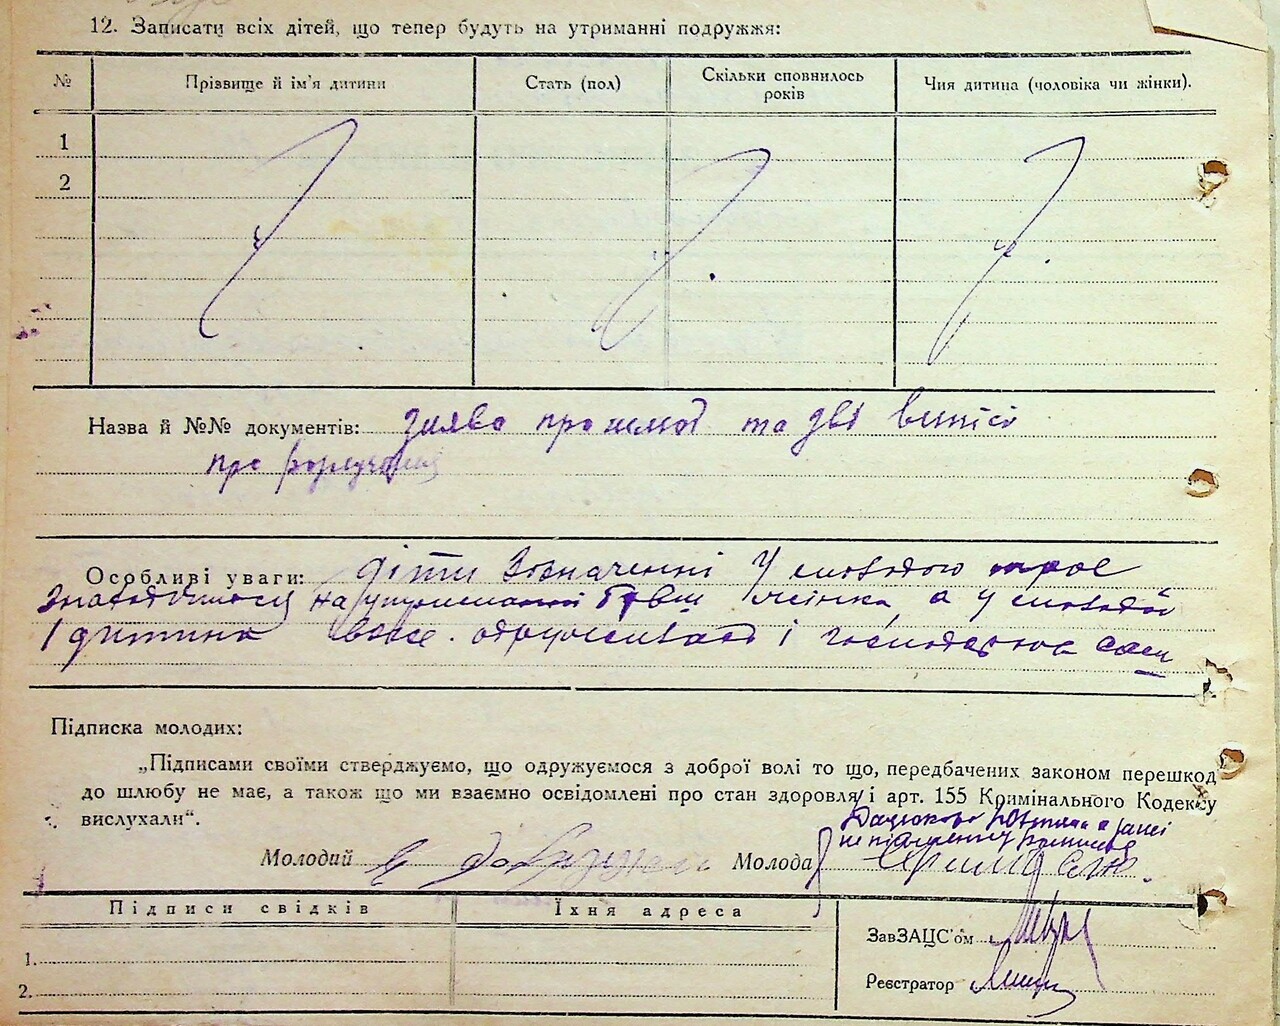 12. Записати всіх дітей, що тепер будуть на утриманні подружжя:
№ Прізвище й ім'я дитини Стать (пол) Скільки сповнилось років Чия дитина (чоловіка чи жінки).
1
2
Назва й №№ документів: заява про шлюб та дві виписі
про розлучення
Особливі уваги: діти зазначенні У молодого троє
знаходитися на утриманні бувш жінка, а у молодої
1 дитина вже одружився і господарює сам
Підписка молодих:
„Підписами своїми стверджуємо, що одружуємося з доброї волі то що, передбачених законом перешкод
до шлюбу не має, а також що ми взаємно освідомлені про стан здоровля і арт. 155 Кримінального Кодексу
вислухали“.
Молодий Молода
Підписи свідків Їхня адреса
ЗавЗАЦС'ом
1.
Реєстратор
2.